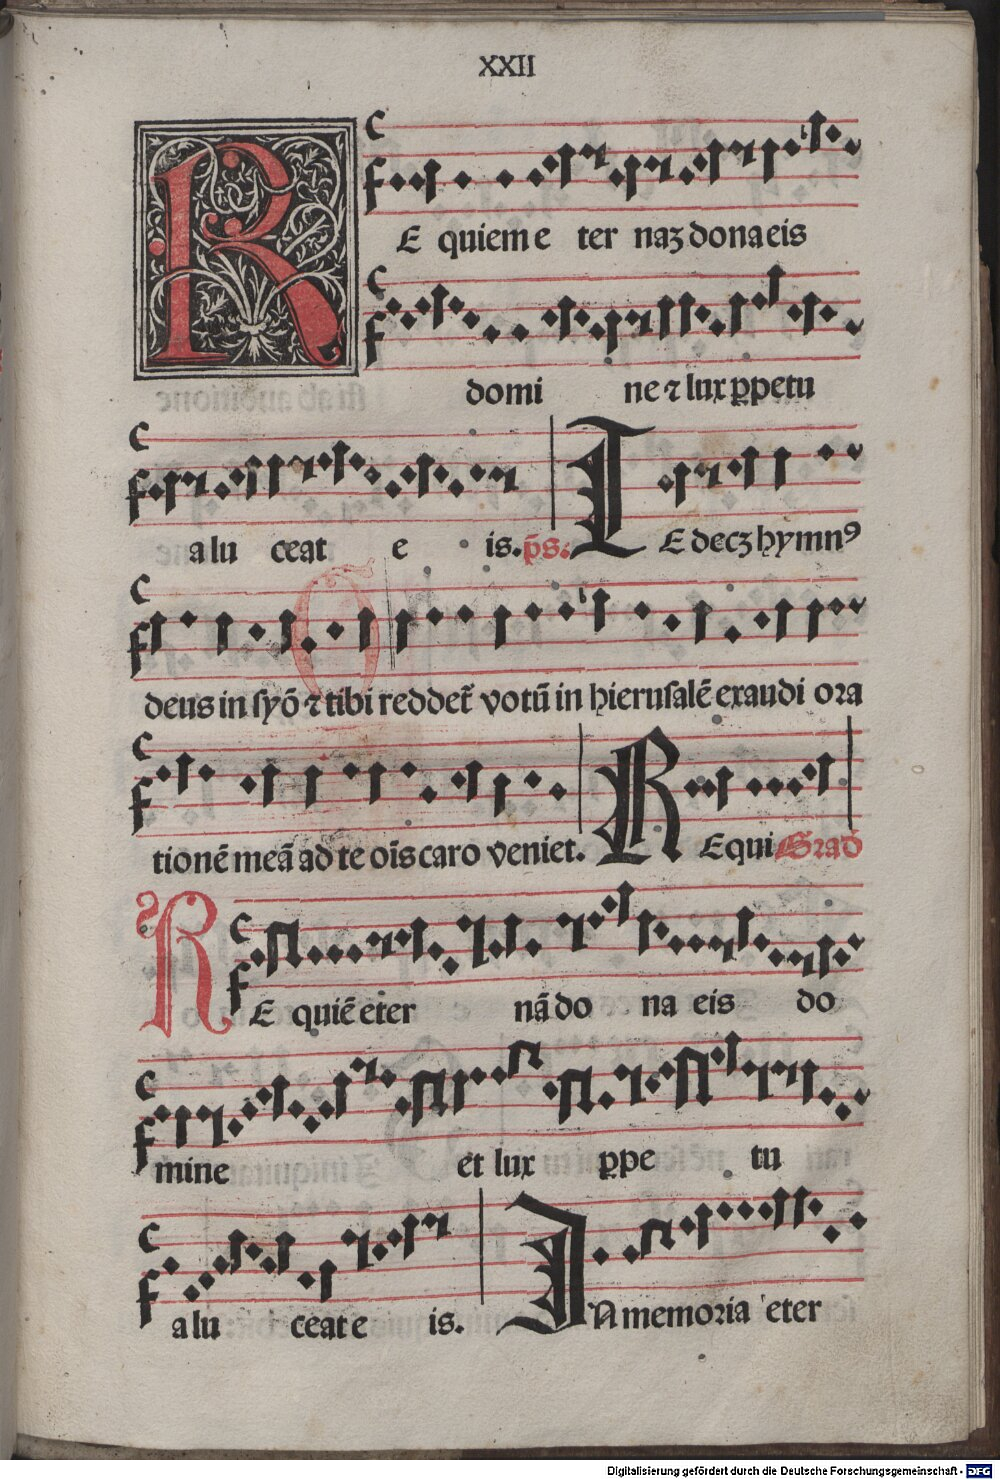 XXII
RE quiem e ter naʒ dona eis
domi ne ⁊ lux ꝑpetu
a lu ceat e is. p̄s. TE decʒ hymnꝰ
deus in syō ⁊ tibi reddet᷑ votū in hierusalē exaudi ora
tionē meā ad te oīs caro veniet. REqui Grad
RE quiē eter nā do na eis do
mine et lux ꝑpe tu
a lu ceat e is. IN memoria eter
Digitalisierung gefördert durch die Deutsche Forschungsgemeinschaft - DFG